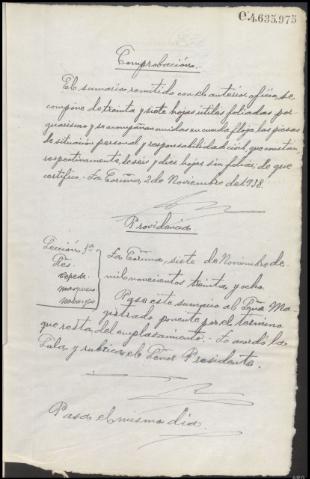 C.4.635.975
Comprobación.
El sumario remitido con el anterior oficio, se
compone de treinta y siete hojas utiles foliadas por
quarismo y se acompañan unidas en cuerda floja las piezas
de situación personal y responsabilidad civil, que constan
respectivamente de seis y dos hojas sin foliar, de que
certifico.- La Coruña, 2 de Noviembre de 1.938.
Providencia
Sección 1ª
Sres.
La Coruña, siete de Noviembre de
mil novecientos treinta y ocho
Pase este sumario al Sr. Ma-
gistrado ponente por el término
que resta del emplazamiento.- Lo acordó la
Sala y rubrica el Señor Presidente.
Pasa el mismo dia